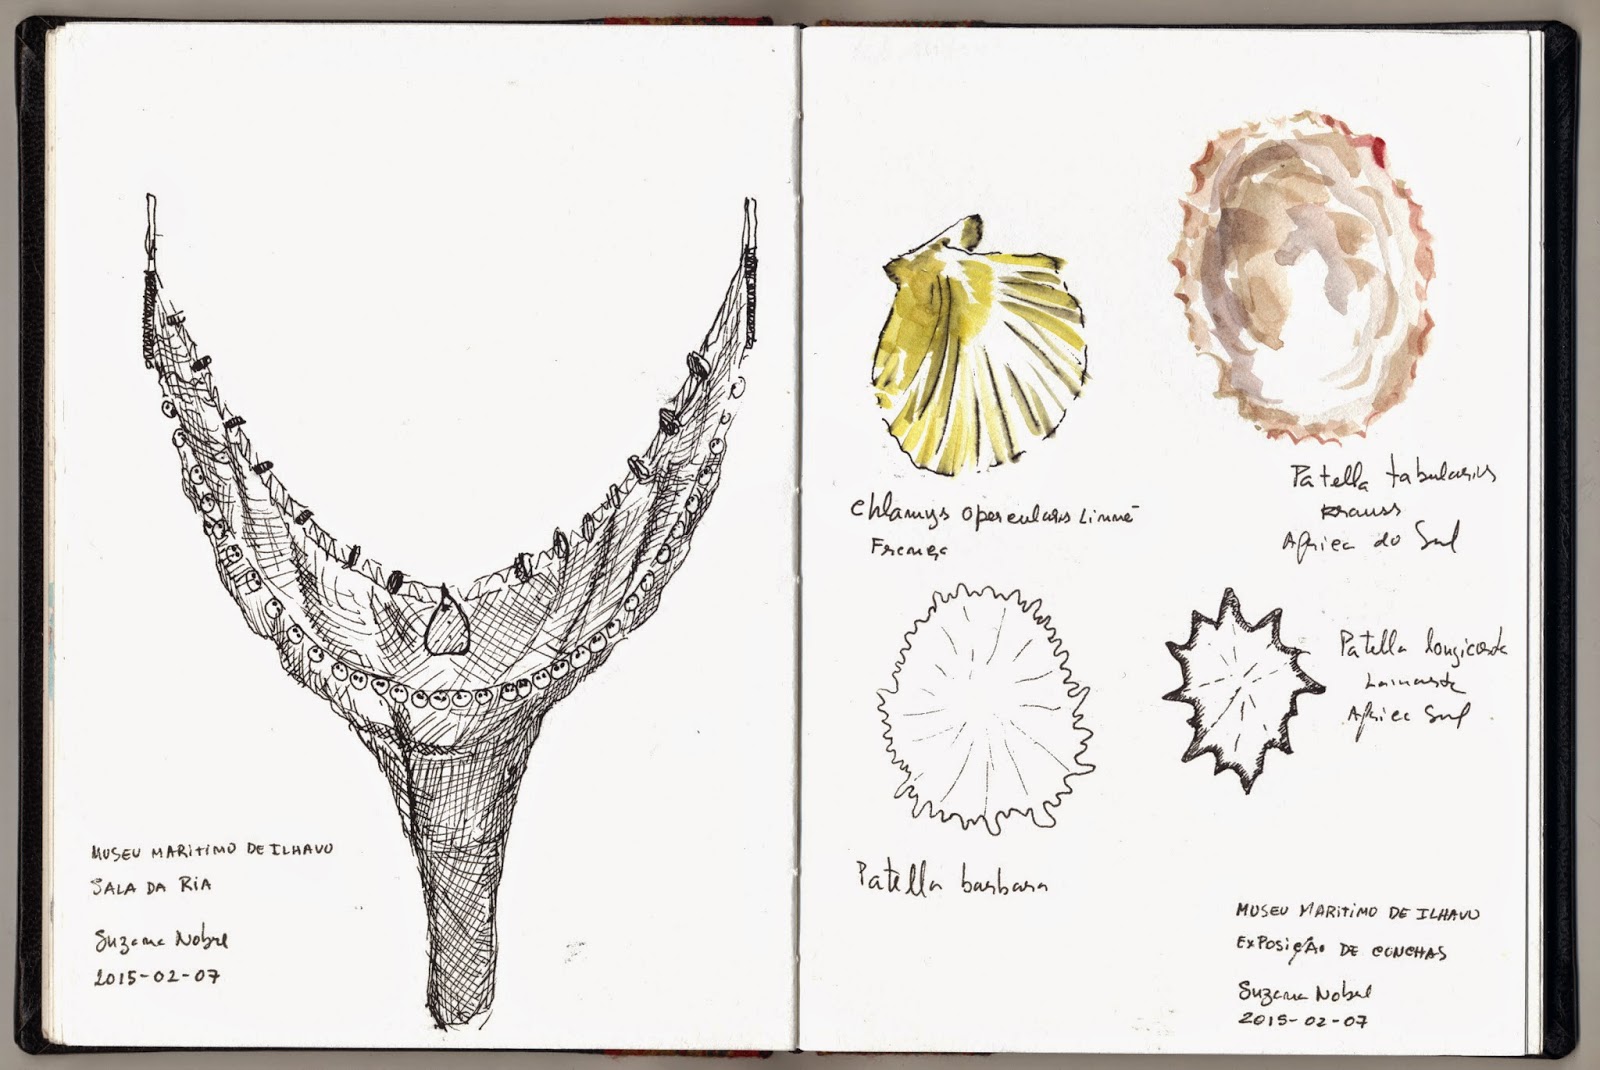 MUSEU MARITIMO DE ILHAVO
SALA DA RIA
Suzana Nobre
2015-02-07
Chlamys opercularis Linné
França
Patella tabularis
Krauss
Africa do Sul
Patella longicosta
Lamarck
Africa Sul
Patella barbara
MUSEU MARITIMO DE ILHAVO
EXPOSIÇÃO DE CONCHAS
Suzana Nobre
2015-02-07